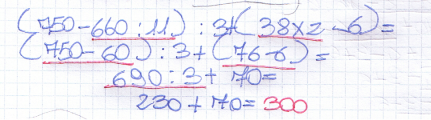 (750-660:11) : 3+(38x2-6)=
(750-60) : 3+(76-6)=
690:3+70=
230+70=300